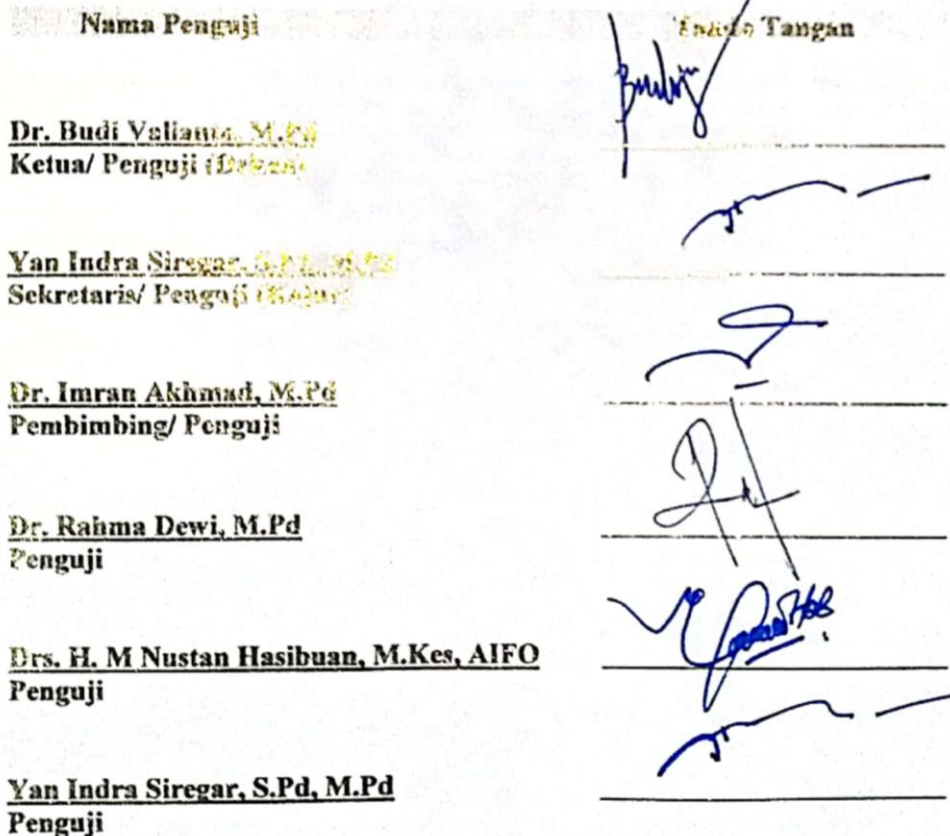 Nama Penguji Tanda Tangan
Dr. Budi Valianto, M.Pd
Ketua/ Penguji (Dekan)
Yan Indra Siregar, S.Pd, M.Pd
Sekretaris/ Penguji
Dr. Imran Akhmad, M.Pd
Pembimbing/ Penguji
Dr. Rahma Dewi, M.Pd
Penguji
Drs. H. M Nustan Hasibuan, M.Kes, AIFO
Penguji
Yan Indra Siregar, S.Pd, M.Pd
Penguji